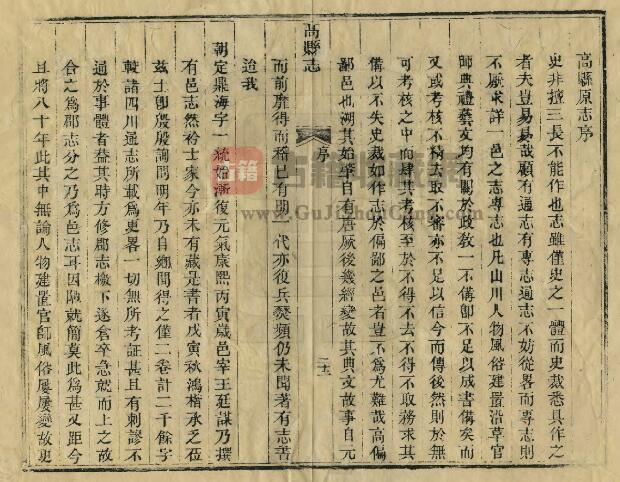 高縣原志序
史非擅三長不能作也志雖僅史之一體而史裁悉具作之
者夫豈易易哉顧有通志有專志通志不妨從畧而專志則
不厭求詳一邑之志專志也凡山川人物風俗建置沿革官
師典禮藝文均有關於政敎一不備卽不足以成書備矣而
又或考核不精去取不審亦不足以信今而傳後然則於無
可考核之中而肆其考核至於不得不去不得不取務求其
備以不失史裁如作志於偏鄙之邑者豈不爲尤難哉高偏
鄙邑也溯其如肇自有唐厥後幾經變故其典文故事自元
高縣志
序
二十二
而前靡得而稽已有明一代亦復兵燹頻仍未聞著有志書
迨我
朝定鼎海宇一統始漸復元氣康熙丙寅歲邑宰王廷謀乃撰
有邑志然衿士家今亦未有藏是書者戊寅秋鴻楷承乏莅
茲土卽殷殷詢問明年乃自鄉間得之僅二卷計二千餘字
較諸四川通志所載爲更畧一切無所考証甚且有刺謬不
通於事體者蓋其時方修郡志檄下遂倉卒急就而上之故
合之爲郡志分之乃爲邑志耳因陋就簡莫此爲甚又距今
且將八十年此其中無論人物建置官師風俗屢屢變故更
古籍
www.GuJiShouCang.com